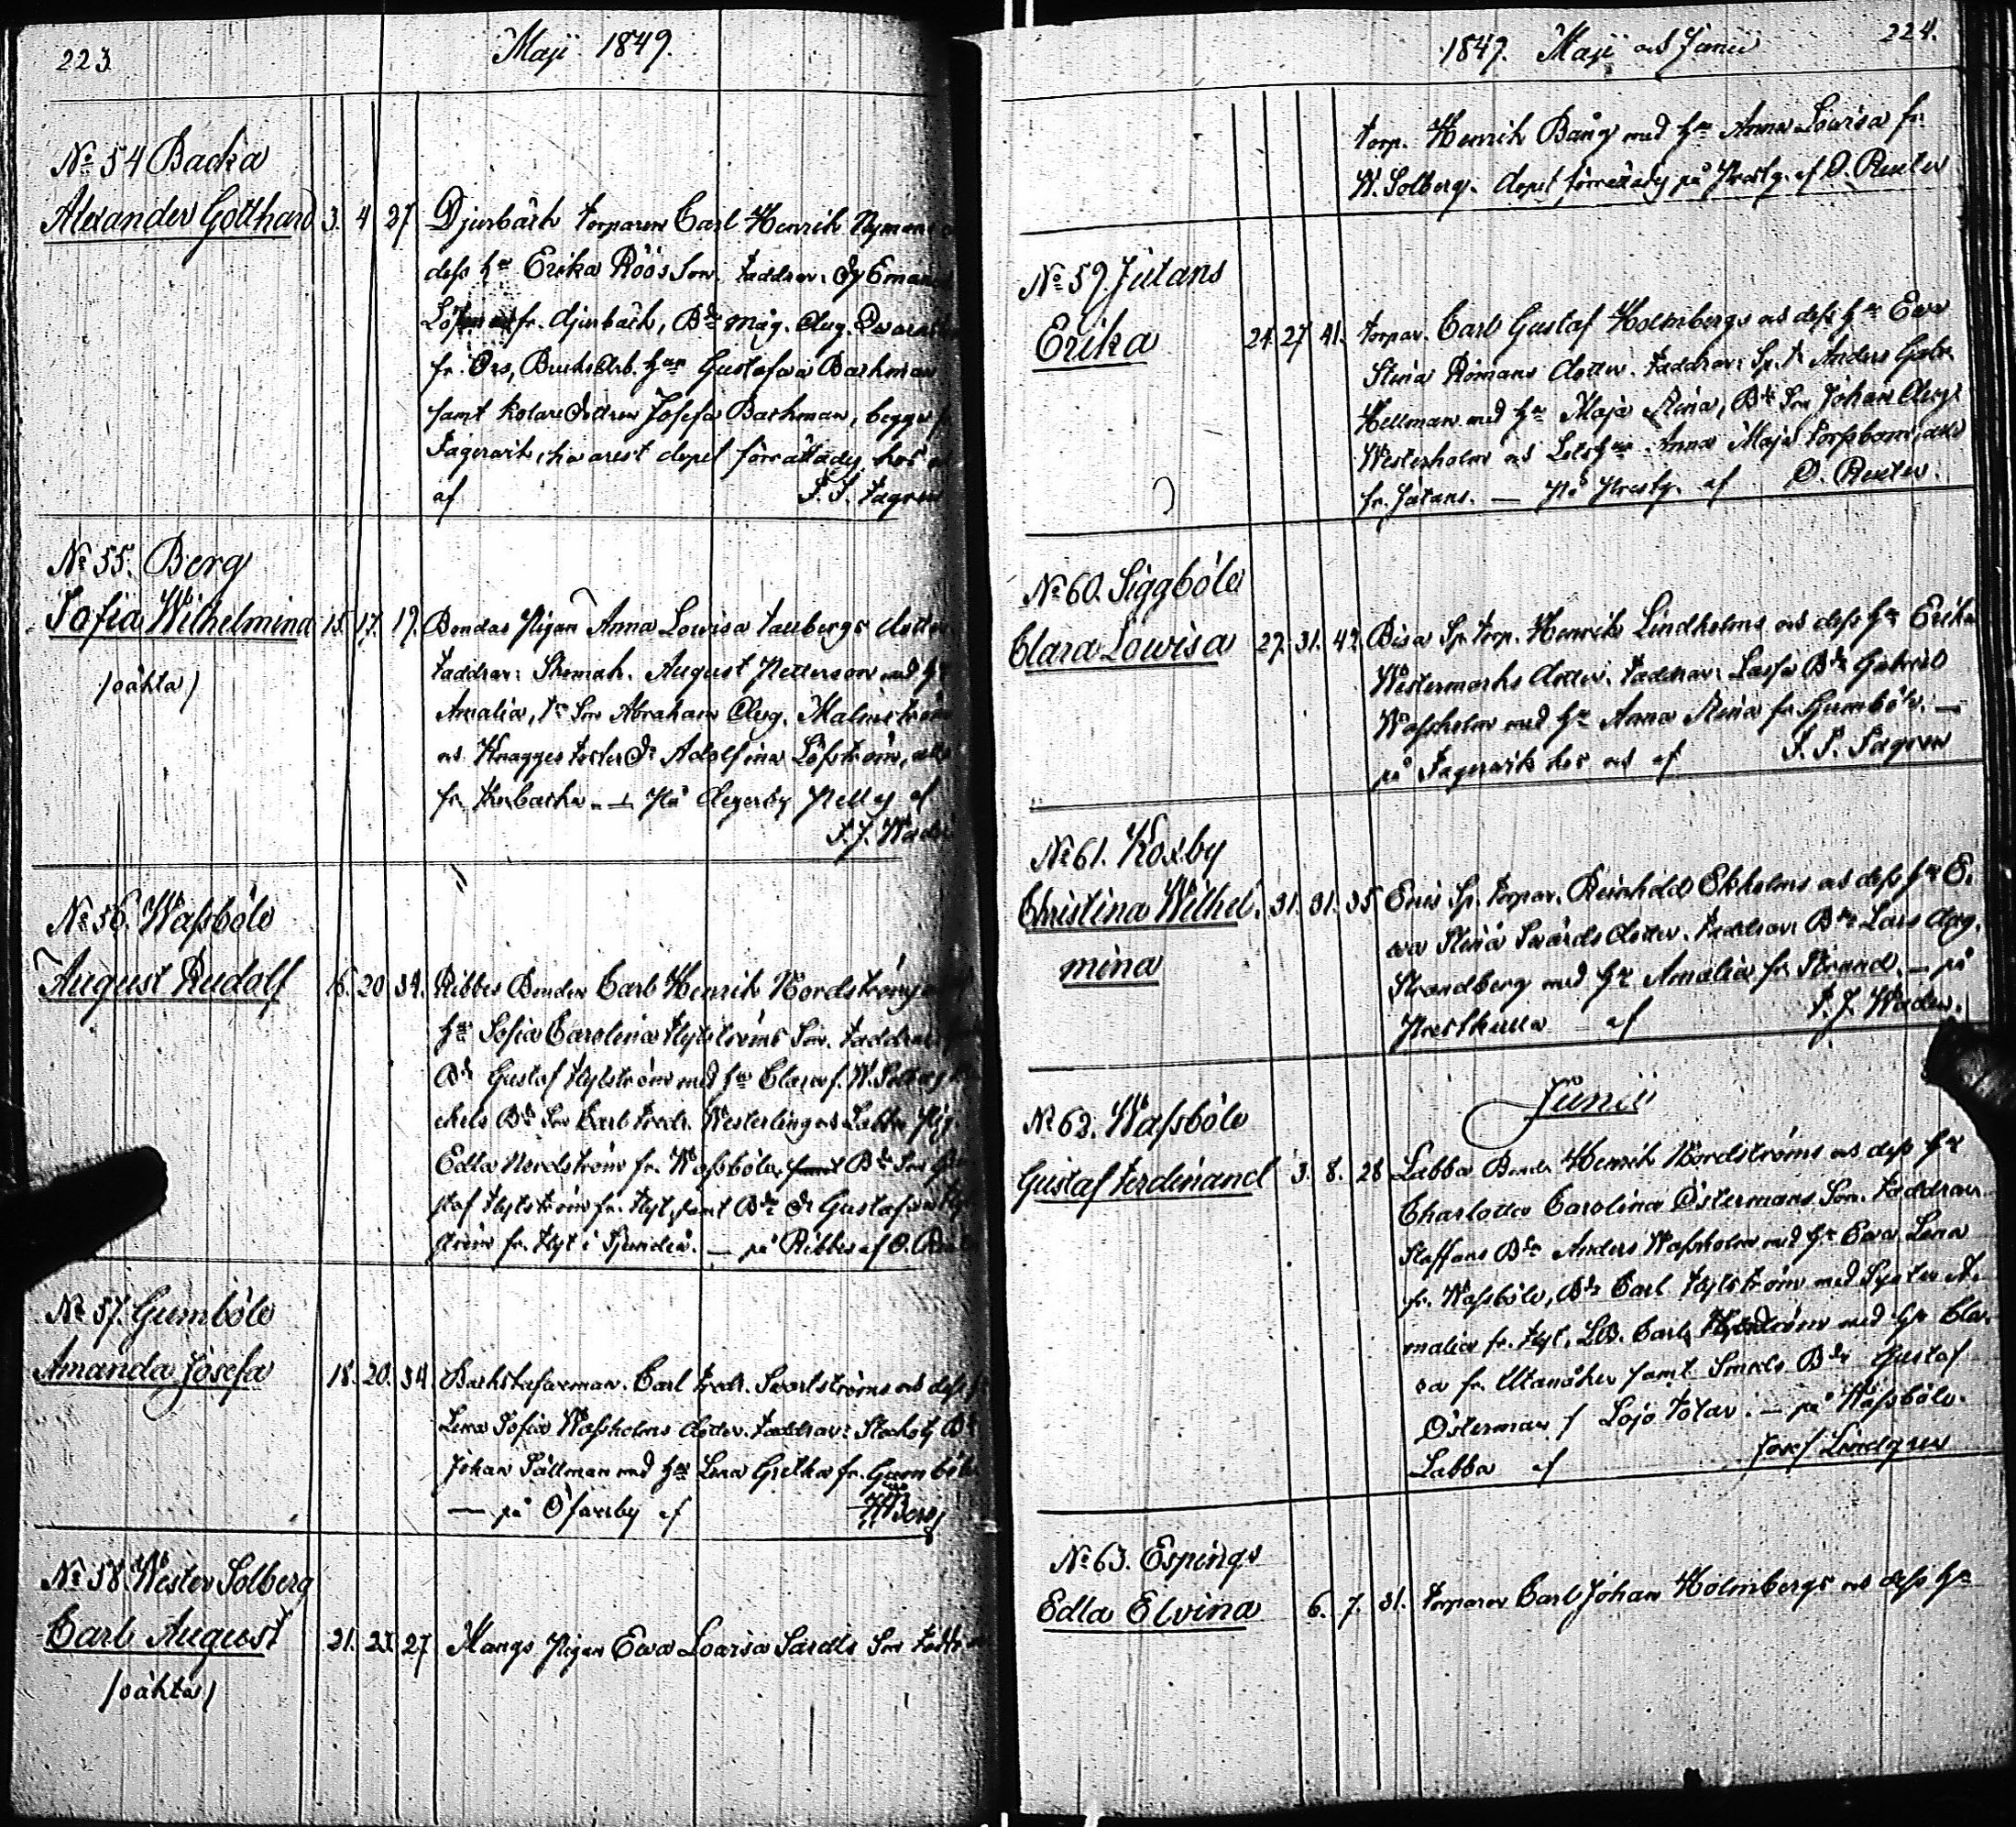 223.
Maji 1849.
No 54 Backa
Alexander Gotthard 3. 4 27 Djurbäck torparen Carl Henrik Nyman
dess hu Erika Röös Son. Faddrar: Eman
fr. Djurbäck, Bde mäg. Aug.
fr. Ors, Bruksarb. hun Gustafva Backman
samt Kolare dottren Josefa Backman, begge
Fagervik, hvarest dopet förrättades hos
af F. F. Fagren
No 55. Berg
Sofia Wilhelmina 15. 17. 19. Bondas Pigan Anna Lowisa Taubergs dotter
/oäkta/
Faddrar: Skomak. August Petterson med hu
Amalia, Tr Son Abraham Aug. Malmström
och Knagges foster Dr Adolfina Löfström, alla
fr. Kusbacka. — På Degerby af
F. J. Waden
No 56. Wassböle
August Rudolf 16. 20 34. Ribbes Bonden Carl Henrik Nordströms
hu Sofia Carolina Flytströms Son. Faddrar
Bde Gustaf Flytström med hu Clara f. W. Solberg
Bde Son Carl Fredr. Westerling och Labba Pig.
Edla Nordström fr. Wassböle, samt Bde Son
staf Flytström fr. Flyt, samt Bde Dr Gustafva Flyt
ström fr. Flyt i Sjundeå. — på Ribbes af O. Reuter
No 57. Gumböle
Amanda Josefa 18. 20. 34 Backstufuman. Carl Fredr. Svartströms och dess
Lena Sofia Wassholms dotter. Faddrar: Bde
Johan Sällman med hu Lena Gretha fr. Gumböle
— på Ofvanby af Borg
No 58 Wester Solberg
Carl August 21. 23. 27 Mangs Pigan Eva Lovisa Sards Son Faddrar
/oäkta/
1849. Maji och Junii
224.
torp. Henrik Bång med hu Anna Lowisa fr.
W. Solberg. dopet förrättades på Prestg. af O. Reuter
No 59 Jutans
Erika 24. 27 41. torpar. Carl Gustaf Holmbergs och dess hu Eva
Stina Römans dotter. Faddrar: Sp. Tr Anders Gabr.
Hellman med hu Maja Stina, Bde Son Johan Aug.
Westerholm och Lots hu Anna Maja Forsbom, alla
fr. Jutans. — På Prestg. af O. Reuter.
No 60. Siggböle
Clara Lowisa 27. 31. 42. Bisa Sp. torp. Henrik Lindholms och dess hu Erika
Westermarks dotter. Faddrar: Lassa Bde Gabriel
Wassholm med hu Anna Stina fr. Gumböle. —
på Fagervik hos och af F. F. Fagren
No 61. Koxby
Christina Wilhel- 31. 31. 35 Eris Sp. torpar. Reinhold Ekholms och dess hu E-
mina
va Stina Svärds dotter. Faddrar: Bde Lars Aug.
Strandberg med hu Amalia fr. Strand. — på
Prestkulla af F. J. Waden.
Junii
No 62. Wassböle
Gustaf Ferdinand 3. 8. 28 Labba Bonde Henrik Nordströms och dess hu
Charlotta Carolina Östermans Son. Faddrar
Staffans Bde Anders Wassholm med hu Eva Lena
fr. Wassböle, Bde Carl Flytström med Syster A-
malia fr. Flyt, LB. Carl med hu Cla-
ra fr. Utanåker samt Smeds Bde Gustaf
Österman f Lojo Totar. — på Wassböle.
Labba af Josef Lindgren
No 63. Espings
Edla Elvina 6. 7. 31. torparen Carl Johan Holmbergs och dess hu